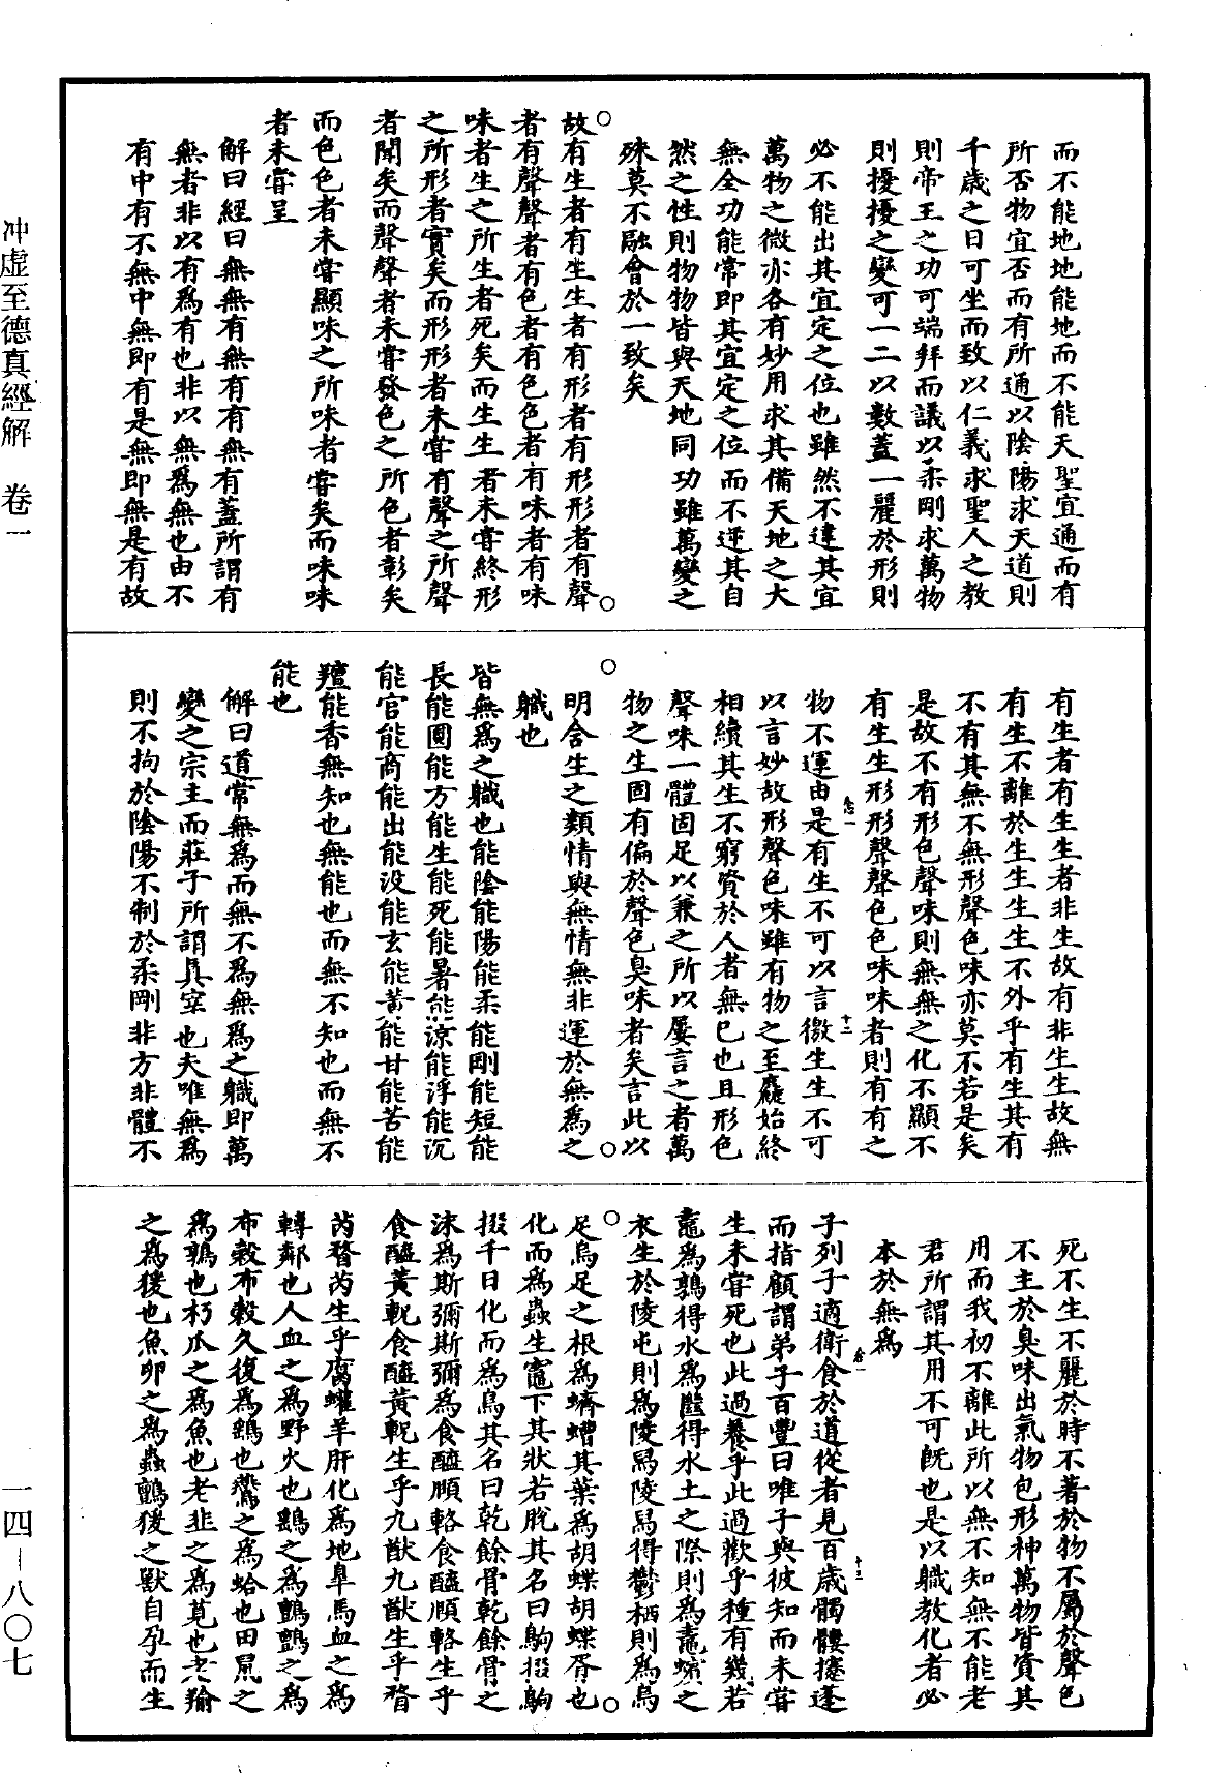 而不能地地能地而不能天聖宜通而有
所否物宜否而有所通以陰陽求天道則
千歲之日可坐而致以仁義求聖人之教
則帝王之功可端拜而議以柔剛求萬物
則擾擾之變可一二以數蓋一麗於形則
必不能出其宜定之位也雖然不違其宜
萬物之微亦各有妙用求其備天地之大
無全功能常即其宜定之位而不逆其自
然之性則物物皆與天地同功雖萬變之
殊莫不融會於一致矣
故有生者有生生者有形者有形形者有聲
者有聲聲者有色者有色色者有味者有味
味者生之所生者死矣而生生者未嘗終形
之所形者實矣而形形者未嘗有聲之所聲
者聞矣而聲聲者未嘗發色之所色者彰矣
而色色者未嘗顯味之所味者嘗矣而味味
者未嘗呈
解曰經曰無無有無有有無有蓋所謂有
無者非以有為有也非以無為無也由不
有中有不無中無即有是無即無是有故
有生者有生生者非生故有非生生故無
有生不離於生生生生不外乎有生其有
不有其無不無形聲色味亦莫不若是矣
是故不有形色聲味則無無之化不顯不
有生生形形聲聲色色味味者則有有之
物不運由是有生不可以言徼生生不可
以言妙故形聲色味雖有物之至麤始終
相續其生不窮資於人者無已也且形色
聲味一體固足以兼之所以屢言之者萬
物之生固有偏於聲色臭味者矣言此以
明含生之類情與無情無非運於無為之
職也
皆無為之職也能陰能陽能柔能剛能短能
長能圓能方能生能死能暑能涼能浮能沉
能宮能商能出能沒能玄能黃能甘能苦能
羶能香無知也無能也而無不知也而無不
能也
解曰道常無為而無不為無為之職即萬
變之宗主而莊子所謂真宰也夫唯無為
則不拘於陰陽不制於柔剛非方非體不
死不生不麗於時不著於物不屬於聲色
不主於臭味出氣物包形神萬物皆資其
用而我初不離此所以無不知無不能老
君所謂其用不可既也是以職教化者必
本於無為
子列子適衛食於道從者見百歲髑髏攓蓬
而指顧謂弟子百豐曰唯予與彼知而未嘗
生未嘗死也此過養乎此過歡乎種有幾若
鼃為鶉得水為㡭得水土之際則為鼃蠙之
衣生於陵屯則為陵舄陵舄得鬱栖則為烏
足烏足之根為蠐螬其葉為胡蝶胡蝶胥也
化而為蟲生竈下其狀若脫其名曰鴝掇鴝
掇千日化而為鳥其名曰乾餘骨乾餘骨之
沬為斯彌斯彌為食醯頤輅食醯頤輅生乎
食醯黃軦食醯黃軦生乎九猷九猷生乎瞀
芮瞀芮生乎腐蠸羊肝化為地皋馬血之為
轉鄰也人血之為野火也鷂之為鸇鸇之為
布穀布穀久復為鷂也鷰之為蛤也田鼠之
為鶉也朽瓜之為魚也老韭之為莧也老羭
之為猨也魚卵之為蟲亶爰之獸自孕而生
卷一
十二
卷一
十三
冲虚至德真經解 卷一
一四—八〇七